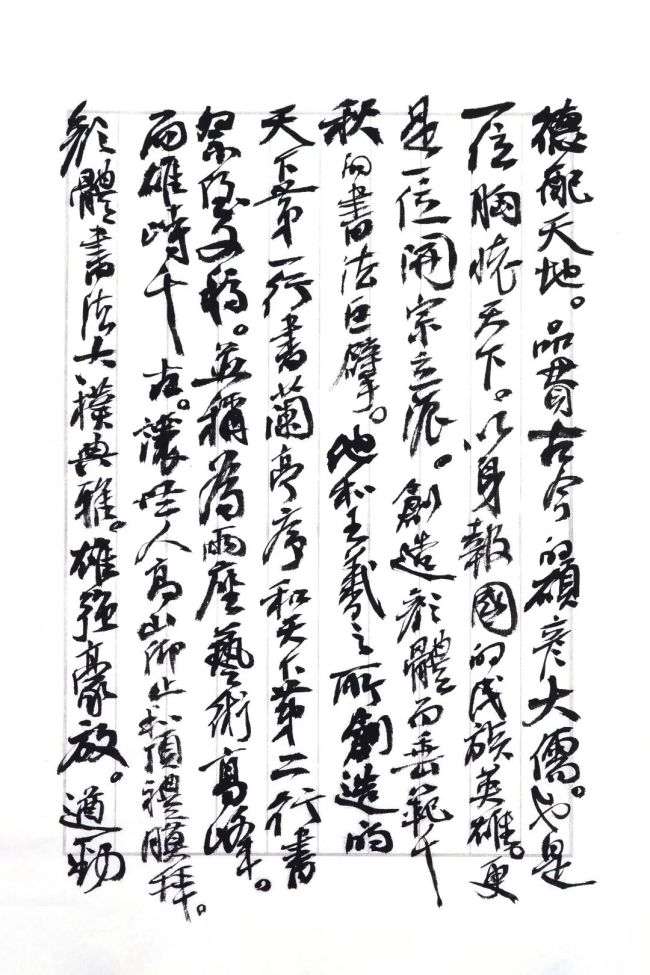 德配天地。品貫古今的碩彦大儒。也是
一位胸懷天下。以身報國的民族英雄。更
是一位開宗立派。創造顔體而垂範千
秋的書法巨擘。他和王羲之所創造的
天下第一行書蘭亭序和天下第二行書
祭侄文稿。並稱爲兩座藝術高峰。
而雄峙千古。讓世人高山仰止和頂禮膜拜。
顔體書法大樸典雅。雄强豪放。遒勁